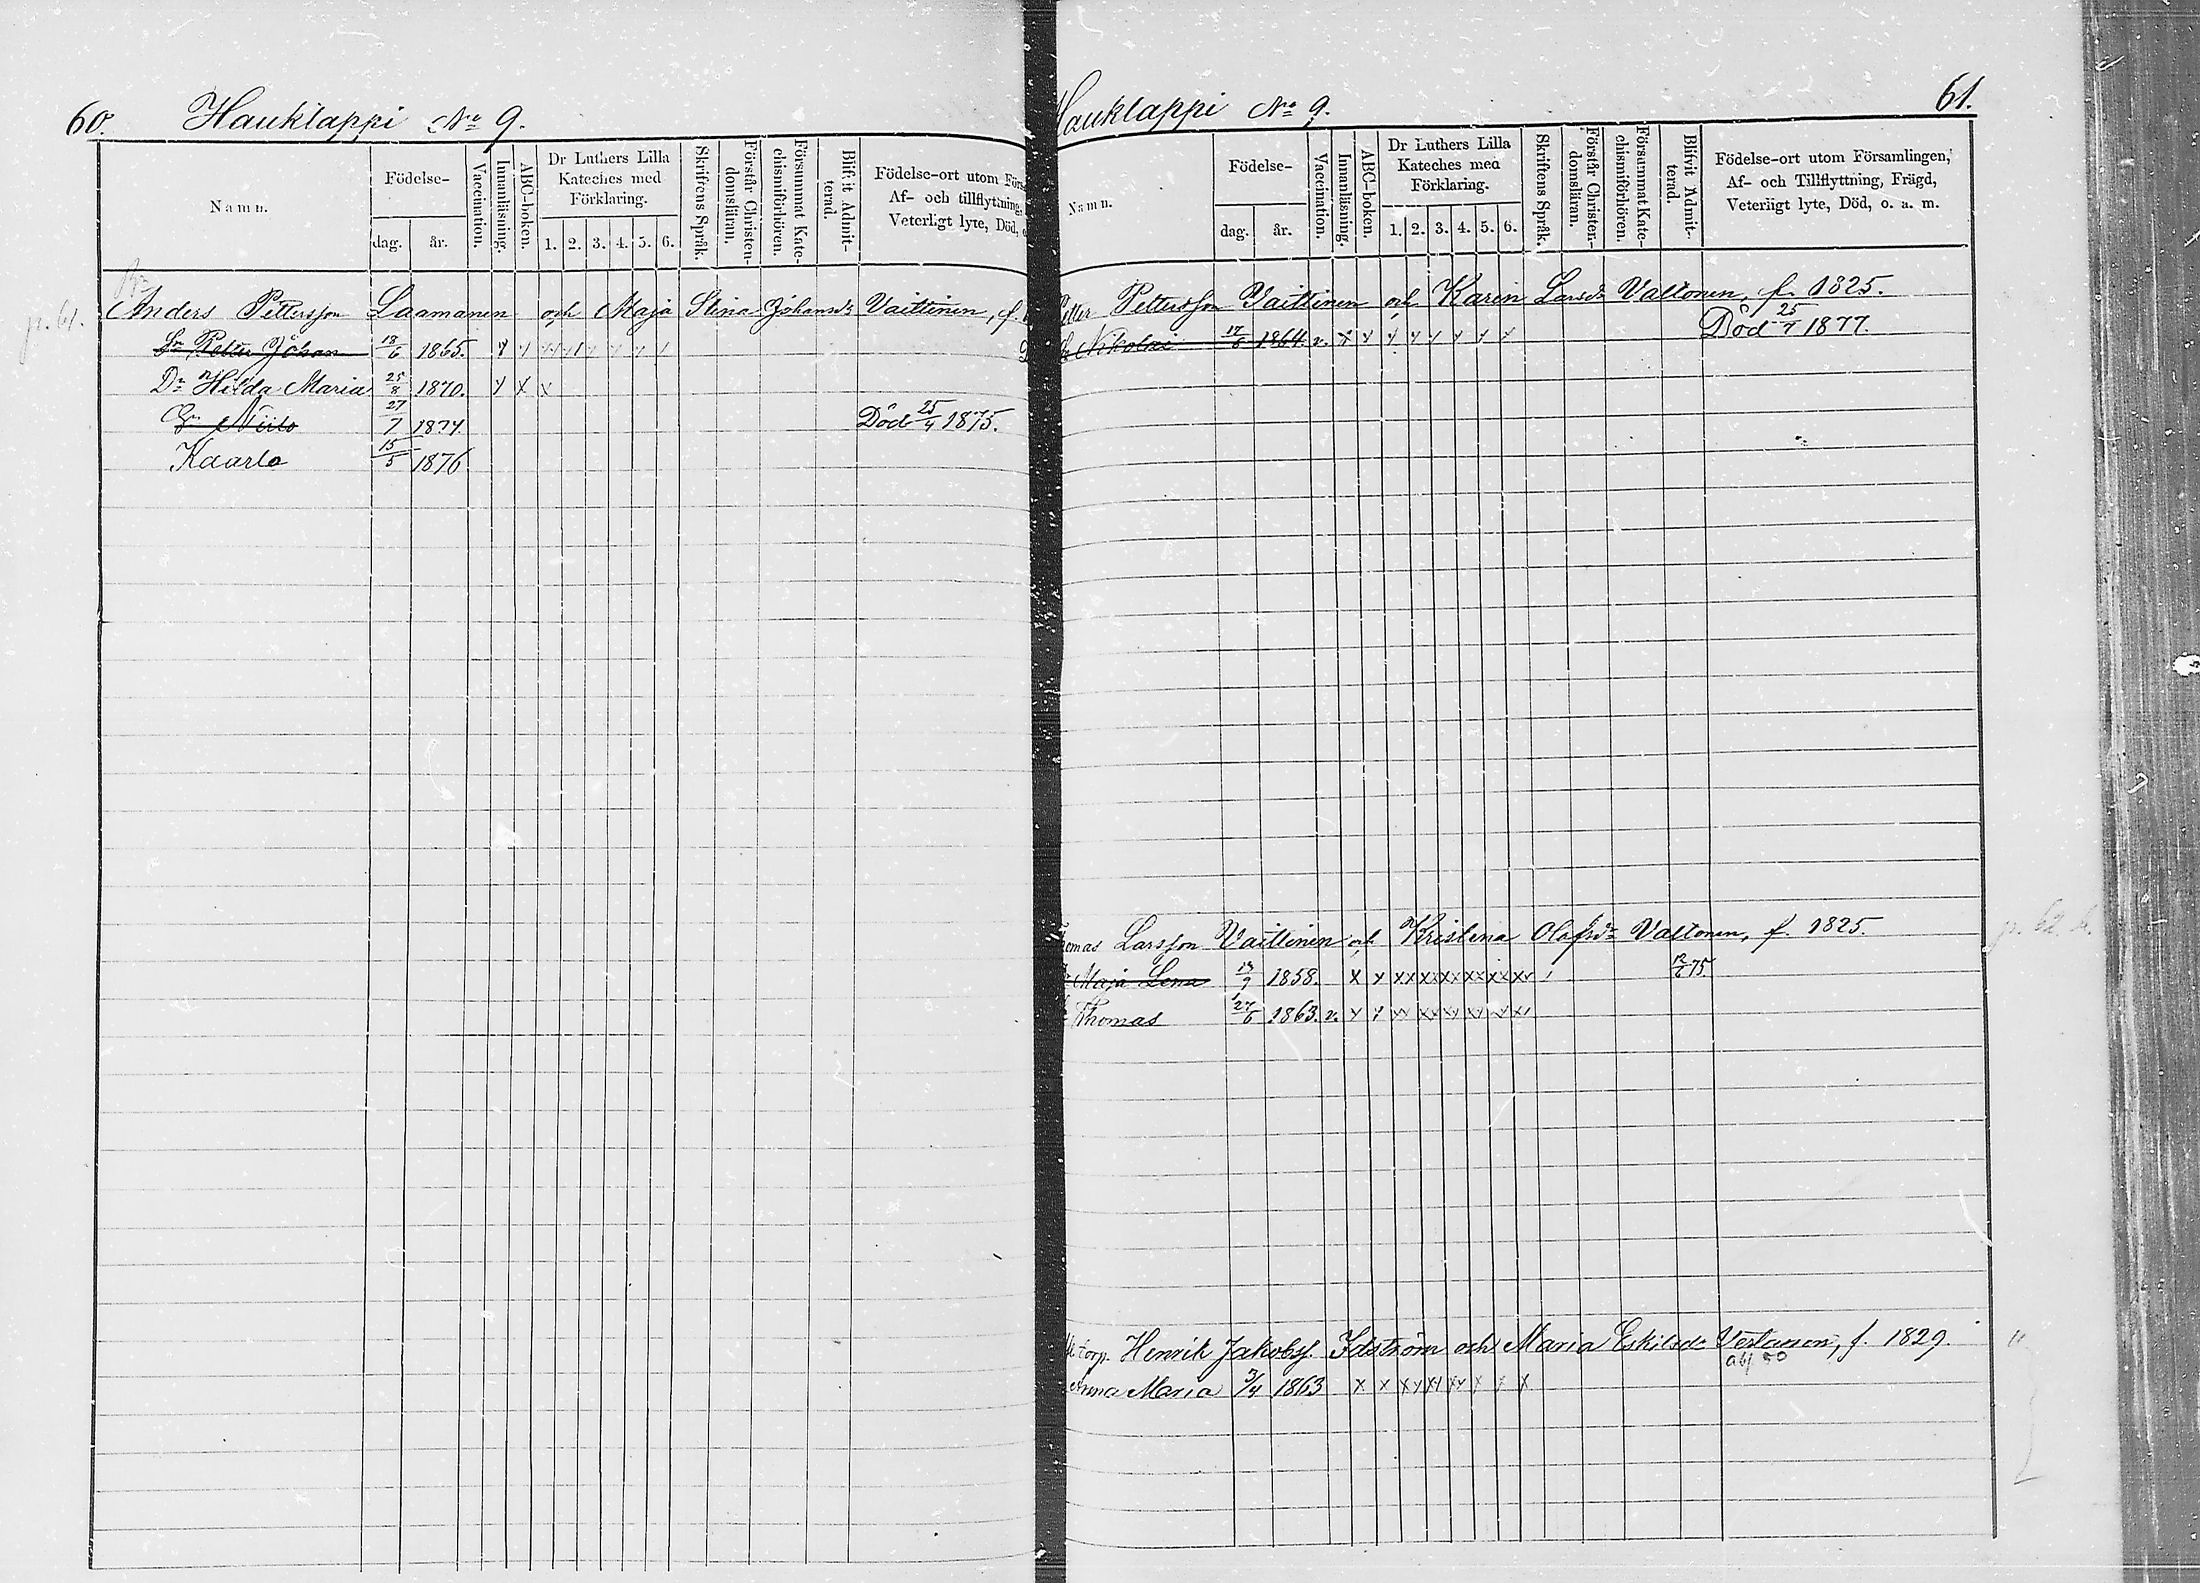 60. Hauklappi No 9.
Namn.
Födelse-
dag. år.
Vaccination.
Innanläsning.
ABC-boken.
Dr Luthers Lilla
Kateches med
Förklaring.
1. 2. 3. 4. 5. 6.
Skriftens Språk.
Förstår Christen-
domsläran.
Försummat Kate-
chismiförhören.
Blifvit Admit-
terad.
Födelse-ort utom Förs
Af- och tillflyttning,
Veterligt lyte, Död,
p. 61.
Anders Pettersson Laamanen och Maja Stina Johansd:r Vaittinen, f.
Sn Petter Johan 18/6 1865.
Dr Hilda Maria 25/8 1870.
Sn Niilo 27/7 1874 Död 25/4 1875.
Kaarlo 15/5 1876
Hauklappi No 9. 61.
Namn.
Födelse-
dag. år.
Vaccination.
Innanläsning.
ABC-boken.
Dr Luthers Lilla
Kateches med
Förklaring.
1. 2. 3. 4. 5. 6.
Skriftens Språk.
Förstår Christen-
domsläran.
Försummat Kate-
chismiförhören.
Blifvit Admit-
terad.
Födelse-ort utom Församlingen,
Af- och Tillflyttning, Frägd,
Veterligt lyte, Död, o. a. m.
Petter Pettersson Vaittinen och Karin Larsd:r Valtonen, f. 1825.
Nikolai 17/6 1864. v. Död 25/7 1877.
Thomas Larsson Vaittinen och Kristina Olofsd:r Valtonen, f. 1825. p. 62
Maja Lena 13/9 1858. 12/6 75.
Thomas 27/6 1863. v.
torp. Henrik Jakobss. Idström och Maria Eskilsd:r Vertanen, f. 1829.
Anna Maria 3/4 1863